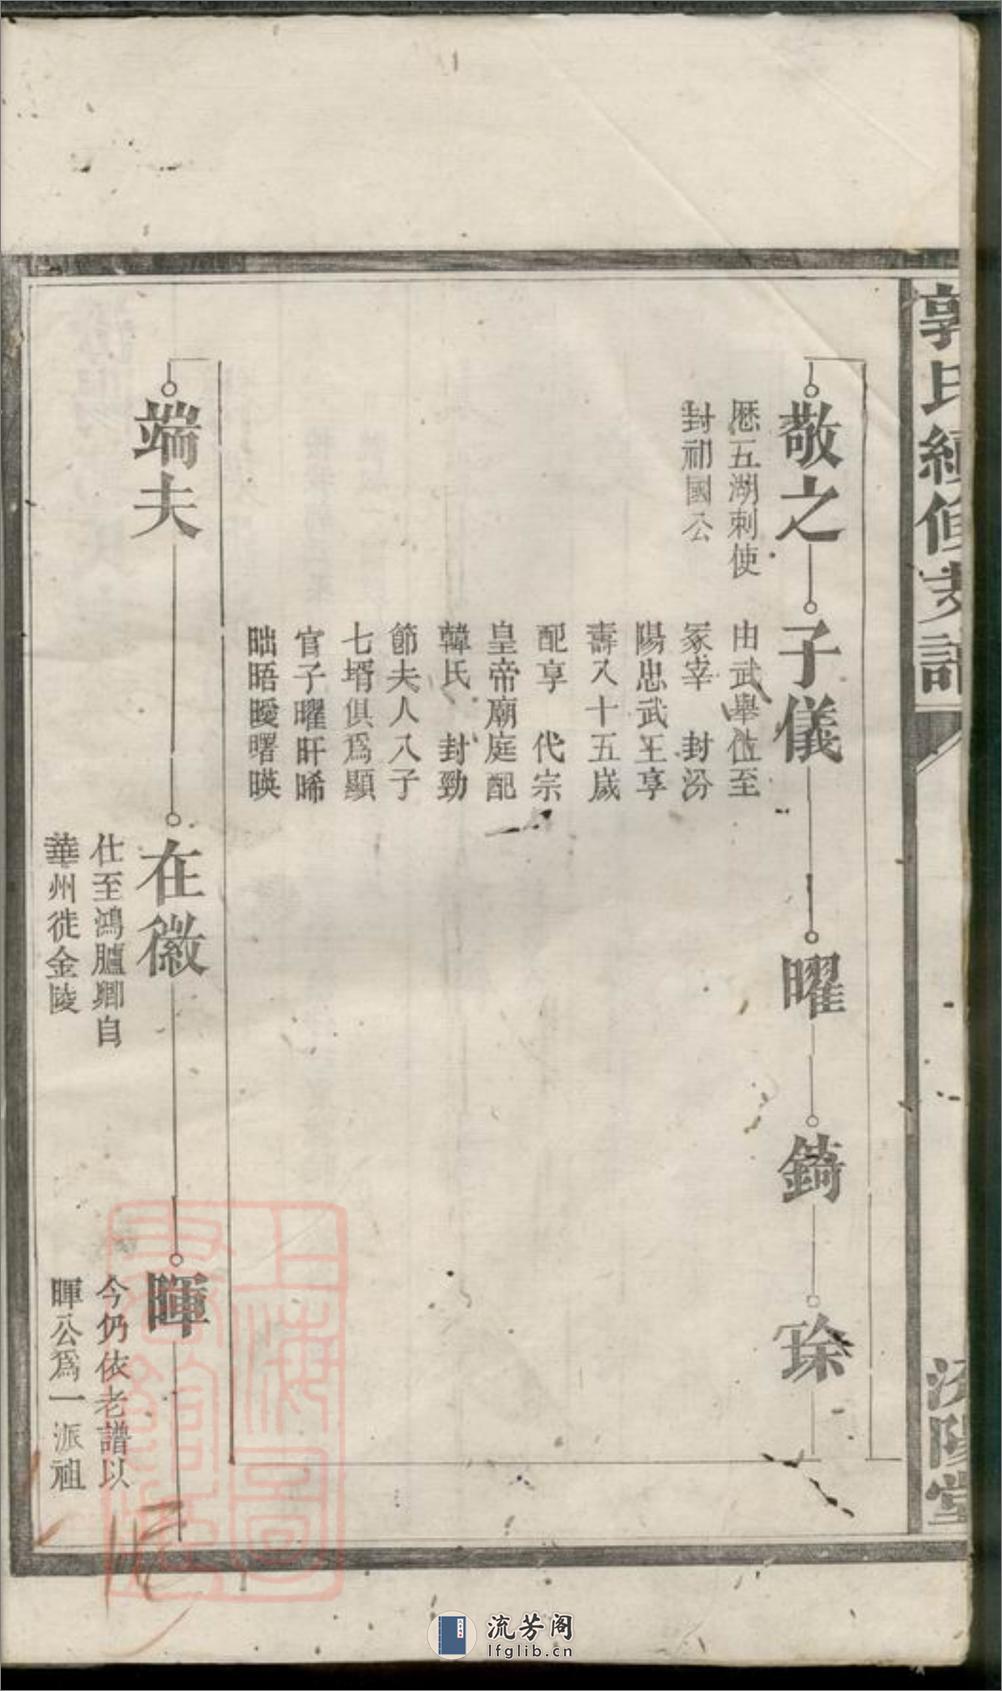 郭氏續修支譜
汾陽堂
敬之
歷五湖刺使
封祁國公
子儀
由武舉位至
冢宰 封汾
陽忠武王享
壽八十五歲
配享 代宗
皇帝廟庭配
韓氏 封勁
節夫人八子
七壻俱爲顯
官子曜旰晞
昢晤曖曙暎
曜
錡
琮
端夫
在徽
仕至鴻臚卿自
華州徙金陵
暉
今仍依老譜以
暉公爲一派祖
上海圖
書館藏
流芳阁
lfglib.cn